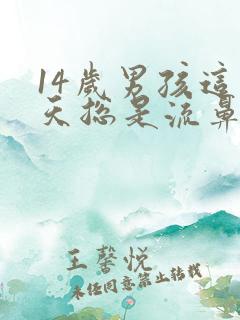 14歲男孩這
天總是流鼻
王馨悅
未經同意禁止轉載